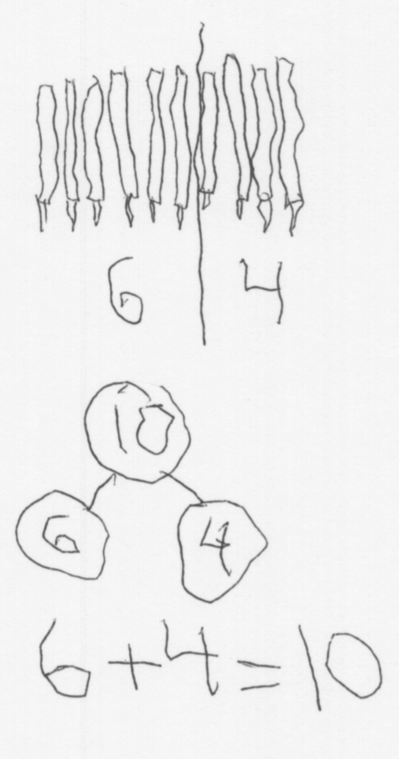 6 4
10
6 4
6 + 4 = 10